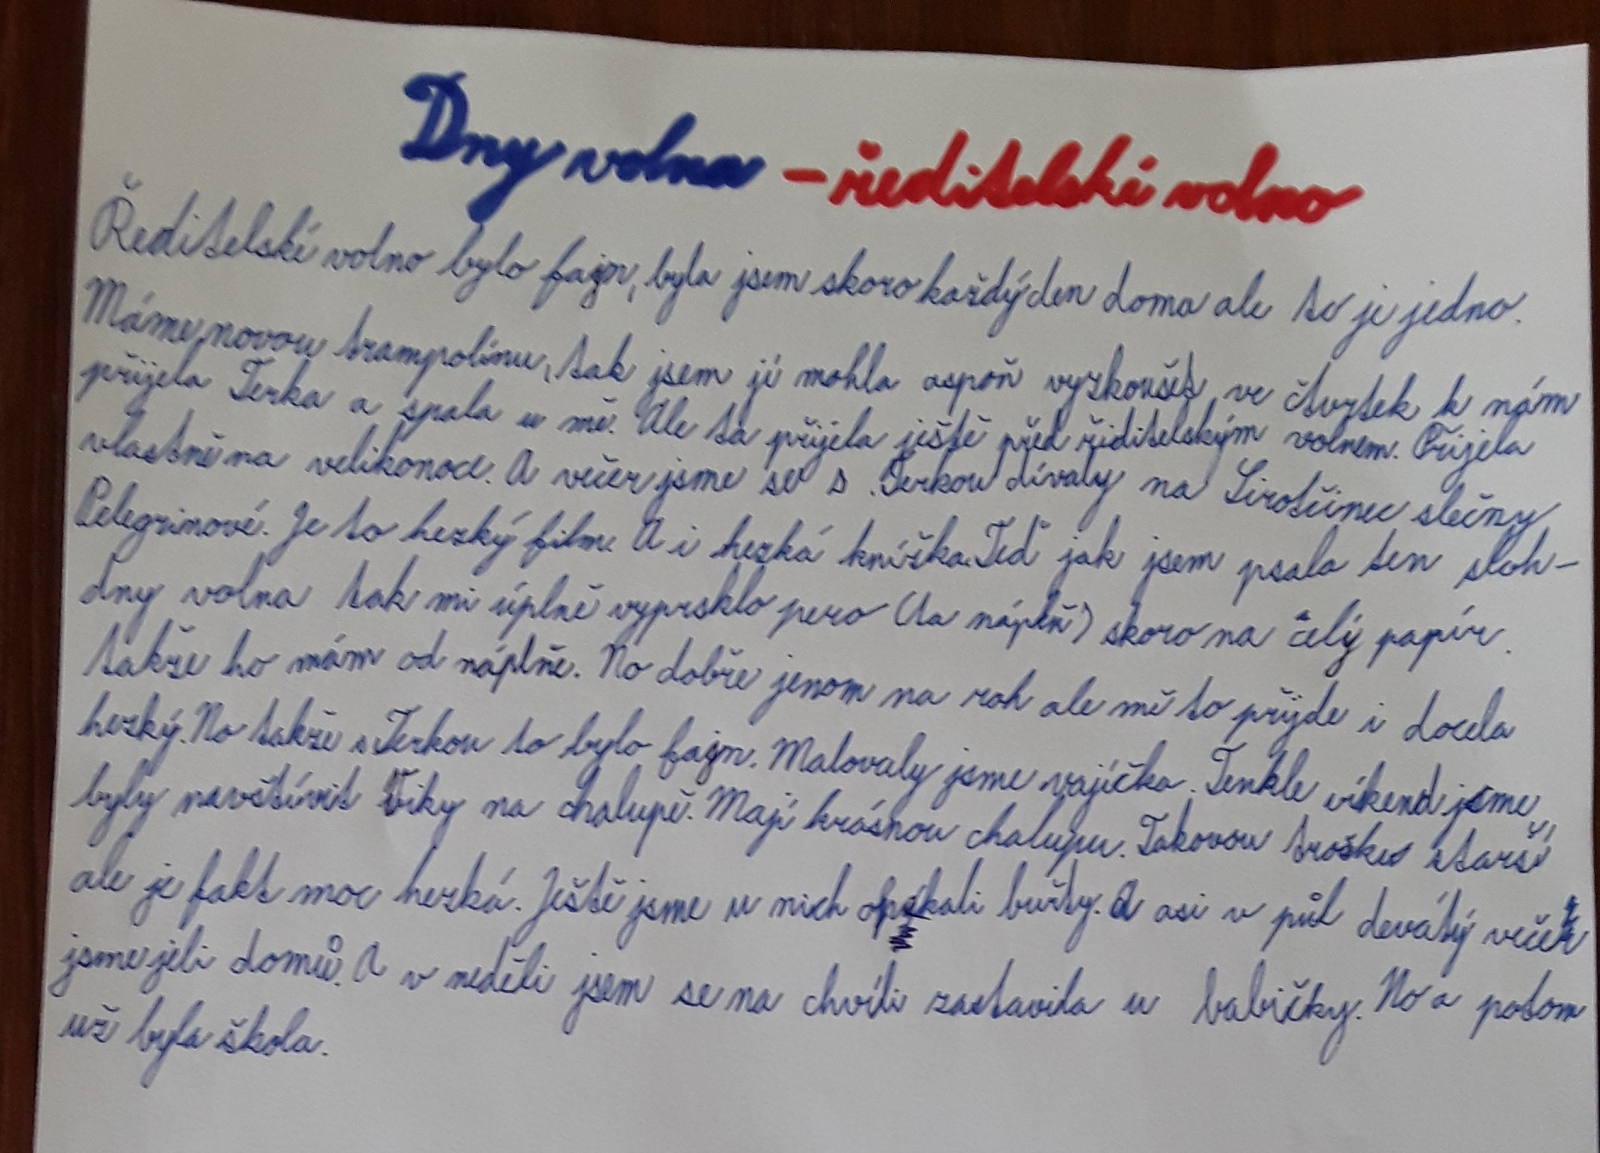 Dny volna - ředitelské volno
Ředitelské volno bylo fajn, byla jsem skoro každý den doma ale to je jedno.
Máme novou trampolínu, tak jsem jí mohla aspoň vyzkoušet ve čtvrtek k nám
přijela Terka a spala u mě. Ale ta přijela ještě před řiditelským volnem. Přijela
vlastně na velikonoce. A večer jsme se s Terkou dívaly na Sirotčinec slečny
Pelegrinové. Je to hezký film. A i hezká knížka. Teď jak jsem psala ten sloh-
dny volna tak mi úplně vyprsklo pero (ta náplň) skoro na celý papír.
takže ho mám od náplně. No dobře jenom na roh ale mě to přijde i docela
hezký. No takže s Terkou to bylo fajn. Malovaly jsme vajíčka. Tenkle víkend jsme
byly navštívit Viky na chalupě. Mají krásnou chalupu. Takovou trošku starší,
ale je fakt moc hezká. Ještě jsme u nich opékali buřty. A asi v půl devátý večer
jsme jeli domů. A v neděli jsem se na chvíli zastavila u babičky. No a potom
už byla škola.